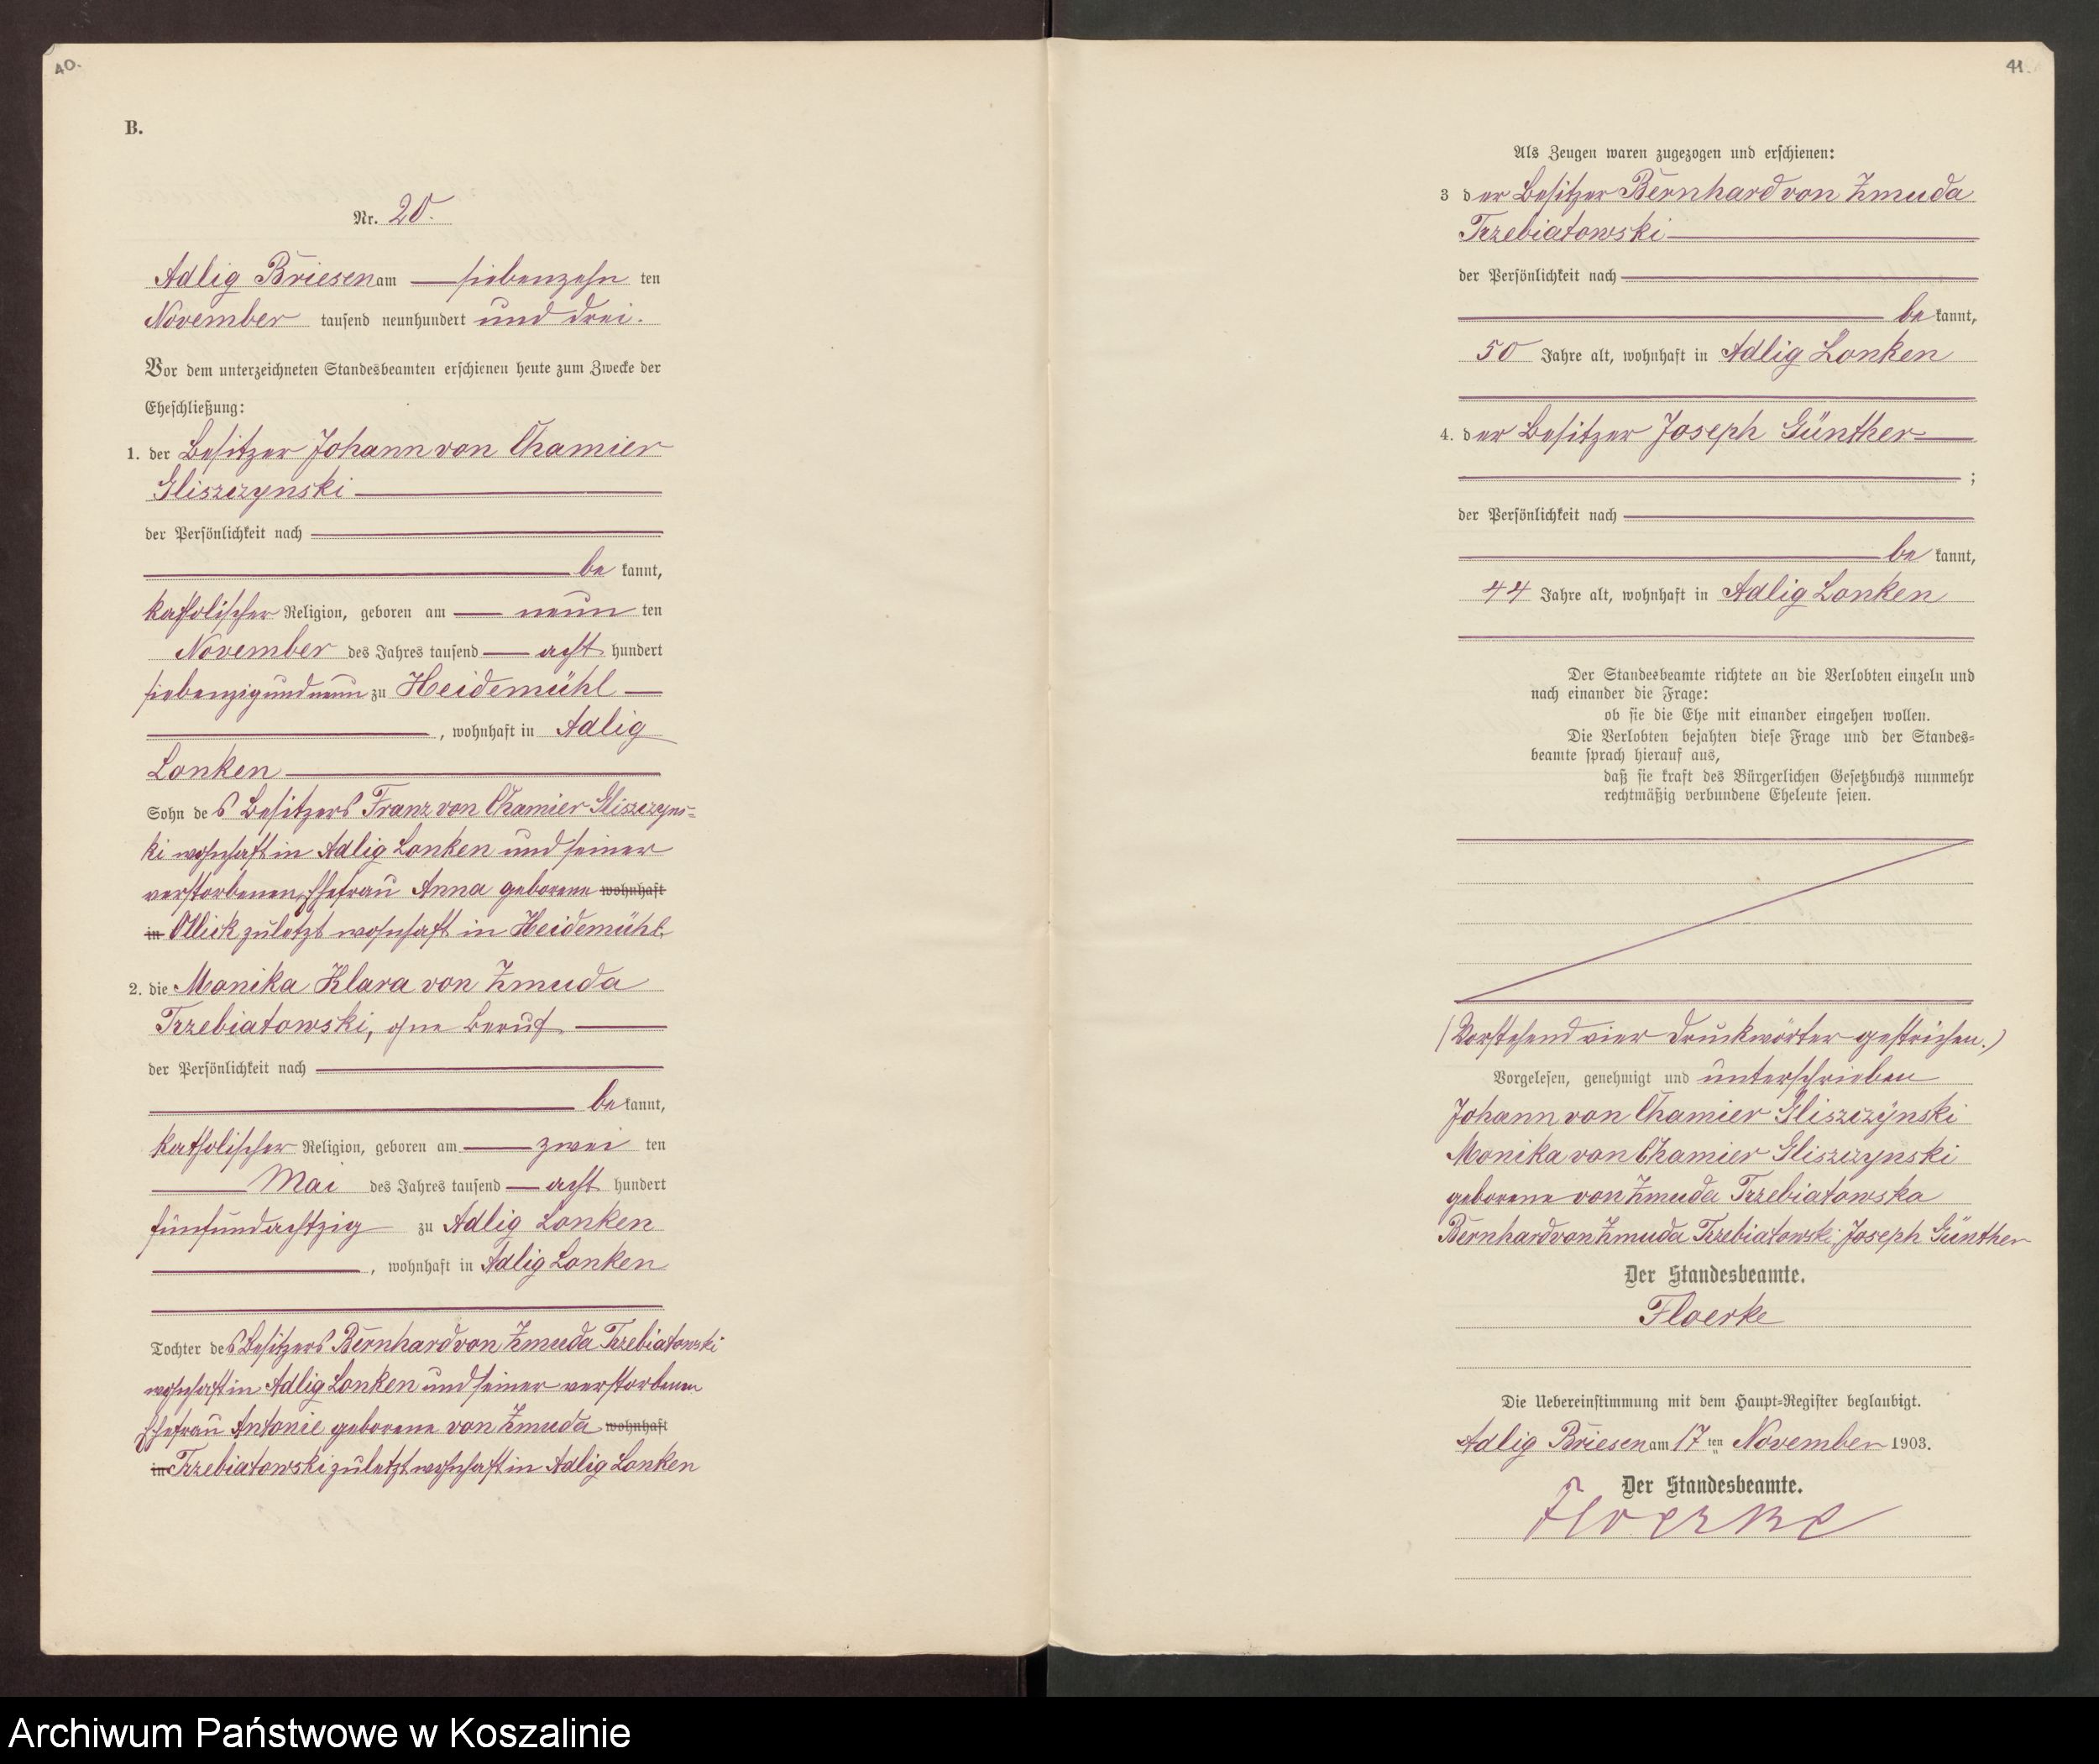 40.
B.
Nr. 20.
Adlig Briesen am siebenzehn ten
November tausend neunhundert und drei.
Vor dem unterzeichneten Standesbeamten erschienen heute zum Zwecke der
Eheschließung:
1. der Besitzer Johann von Chamier
Gliszczynski
der Persönlichkeit nach
be kannt,
katholischer Religion, geboren am neun ten
November des Jahres tausend acht hundert
siebenzig und neun zu Heidemühl
, wohnhaft in Adlig
Lonken
Sohn des Besitzers Franz von Chamier Gliszczyns-
ki wohnhaft in Adlig Lonken und seiner
verstorbenen Ehefrau Anna geborene wohnhaft
in Ollick zuletzt wohnhaft in Heidemühl.
2. die Monika Klara von Zmuda
Trzebiatowski, ohne Beruf
der Persönlichkeit nach
be kannt,
katholischer Religion, geboren am zwei ten
Mai des Jahres tausend acht hundert
fünfundachtzig zu Adlig Lonken
, wohnhaft in Adlig Lonken
Tochter des Besitzers Bernhard von Zmuda Trzebiatowski
wohnhaft in Adlig Lonken und seiner verstorbenen
Ehefrau Antonie geborene von Zmuda wohnhaft
in Trzebiatowski zuletzt wohnhaft in Adlig Lonken
41.
Als Zeugen waren zugezogen und erschienen:
3 der Besitzer Bernhard von Zmuda
Trzebiatowski
der Persönlichkeit nach
be kannt,
50 Jahre alt, wohnhaft in Adlig Lonken
4. der Besitzer Joseph Günther
;
der Persönlichkeit nach
be kannt,
44 Jahre alt, wohnhaft in Adlig Lonken
Der Standesbeamte richtete an die Verlobten einzeln und
nach einander die Frage:
ob sie die Ehe mit einander eingehen wollen.
Die Verlobten bejahten diese Frage und der Standes-
beamte sprach hierauf aus,
daß sie kraft des Bürgerlichen Gesetzbuchs nunmehr
rechtmäßig verbundene Eheleute seien.
(Vorstehend vier Druckwörter gestrichen.)
Vorgelesen, genehmigt und unterschrieben
Johann von Chamier Gliszczynski
Monika von Chamier Gliszczynski
geborene von Zmuda Trzebiatowska
Bernhard von Zmuda Trzebiatowski Joseph Günther
Der Standesbeamte.
Floerke
Die Uebereinstimmung mit dem Haupt-Register beglaubigt.
Adlig Briesen am 17 ten November 1903.
Der Standesbeamte.
Floerke
Archiwum Państwowe w Koszalinie